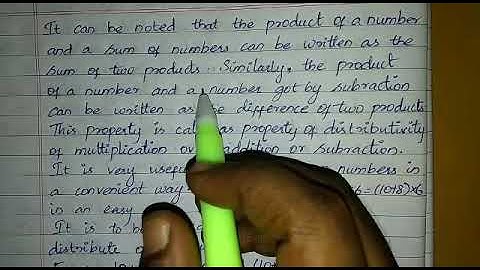 It can be noted that the product of a number
and a sum of numbers can be written as the
sum of two products. Similarly, the product
of a number and a number got by subraction
can be written as the difference of two products
This property is as property of distributivity
of multiplication addition or subraction.
It is very numbers in
a convenient way 6=(10+8)×6
in an easy
It is to
distribute